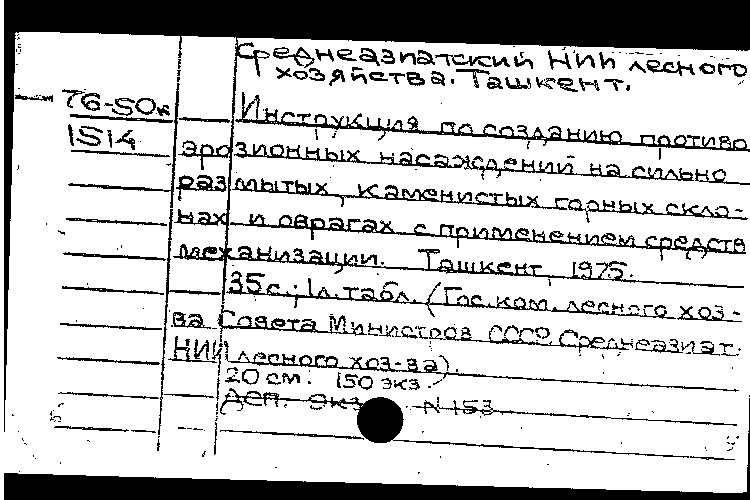 Среднеазиатский НИИ лесного
хозяйства. Ташкент.
76-50к
1514
Инструкция по созданию противо
эрозионных насаждений на сильно
размытых, каменистых горных скло-
нах и оврагах с применением средств
механизации. Ташкент, 1975.
35с.; 1л. табл. (Гос. ком. лесного хоз-
ва Совета Министров СССР. Среднеазиат.
НИИ лесного хоз-ва).
20 см. 150 экз.
Деп. экз. N 153